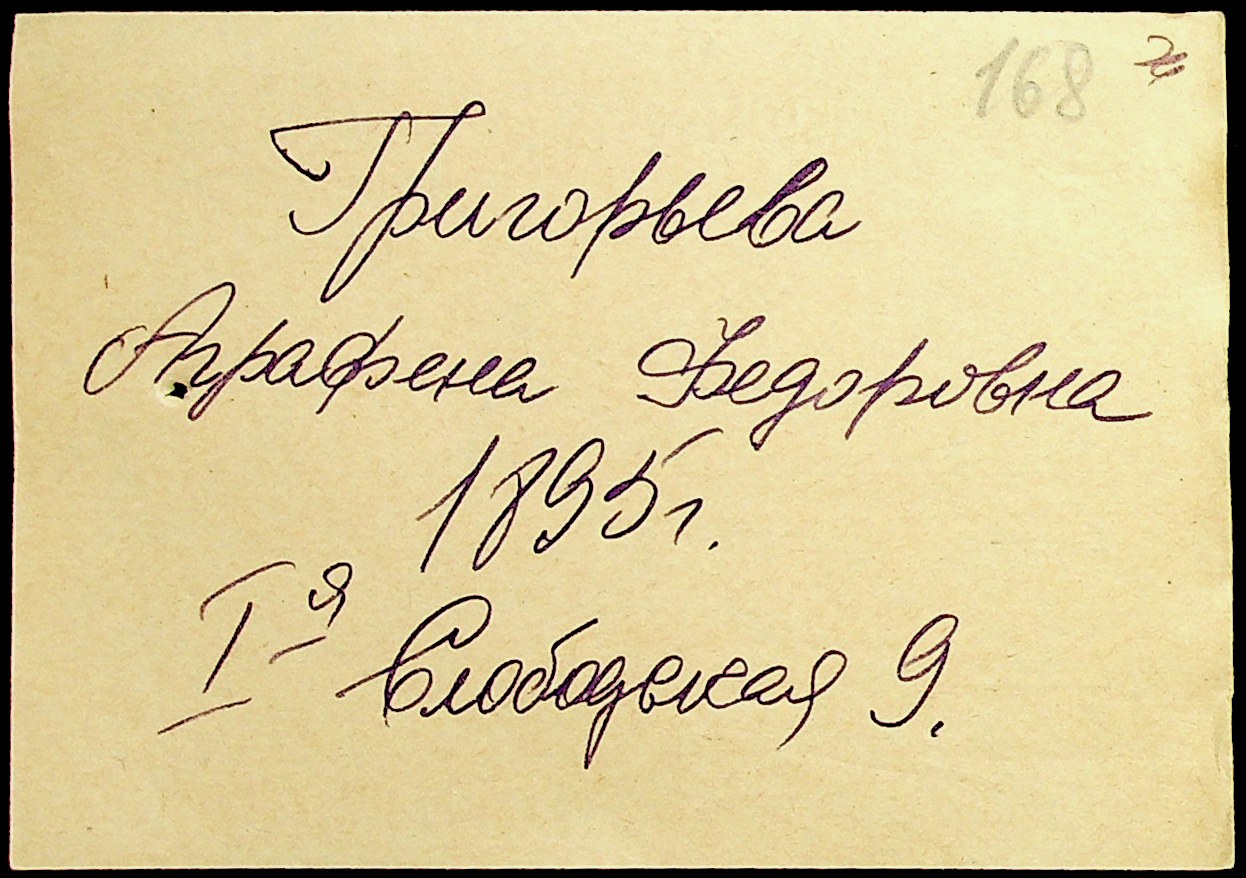 168
Григорьева
Аграфена Федоровна
1895 г.
I-я Слободская 9.